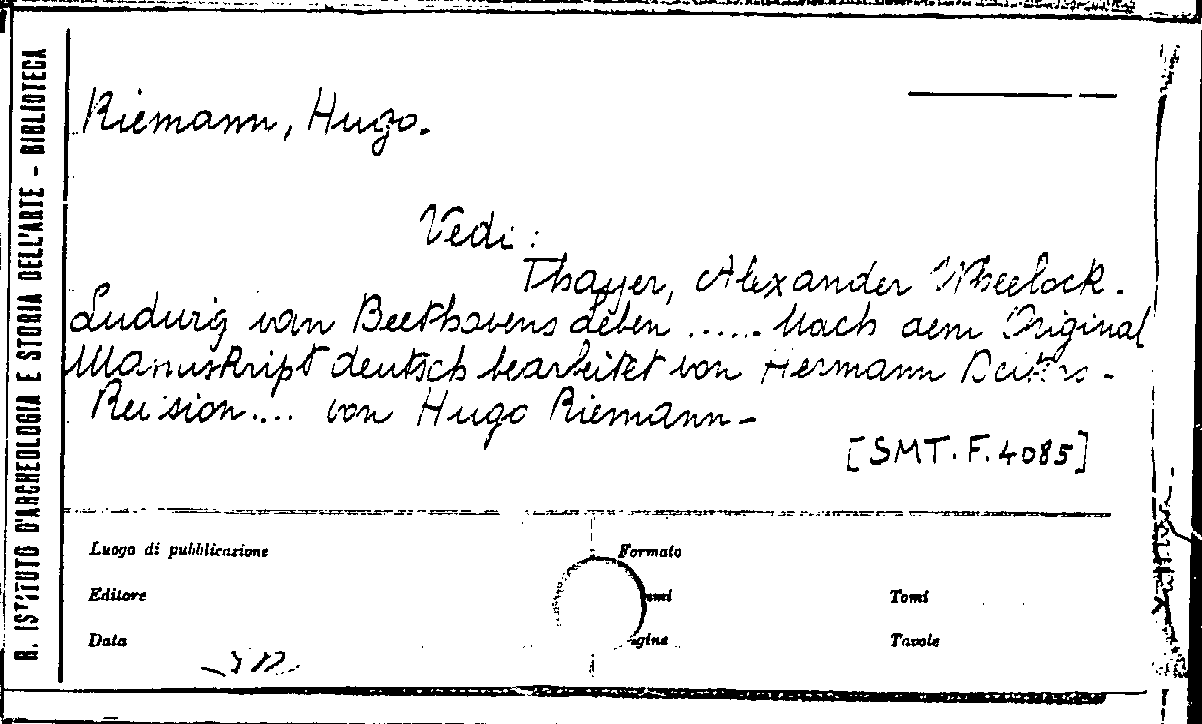 R. ISTITUTO D'ARCHEOLOGIA E STORIA DELL'ARTE - BIBLIOTECA
Riemann, Hugo.
Vedi:
Thayer, Alexander Wheelock.
Ludwig van Beethovens Leben ...... Nach dem Original
Manuskript deutsch bearbeitet von Hermann Deiters-
Revision.... von Hugo Riemann-
[SMT.F.4085]
Luogo di pubblicazione
Formato
Editore
Tomi
Data
Tavole